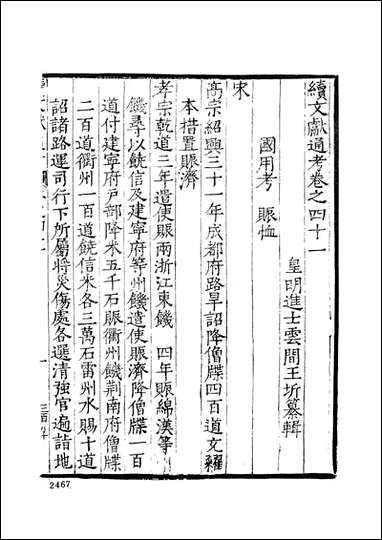 續文獻通考卷之四十一
皇明進士雲間王圻纂輯
國用考 賑恤
宋
高宗紹興三十一年成都府路旱詔降僧牒四百道文糴
本措置賑濟
孝宗乾道三年遣使賑兩浙江東饑 四年賑綿漢等
饑尋以饒信及建寧府等州饑遣使賑濟降僧牒一百
道付建寧府戸部降米五千石賑衢州饑荆南府僧牒
二百道衢州一百道饒信米各三萬石雷州水賜十道
詔諸路運司行下所屬將災傷處各選清強官遍詣地
2467